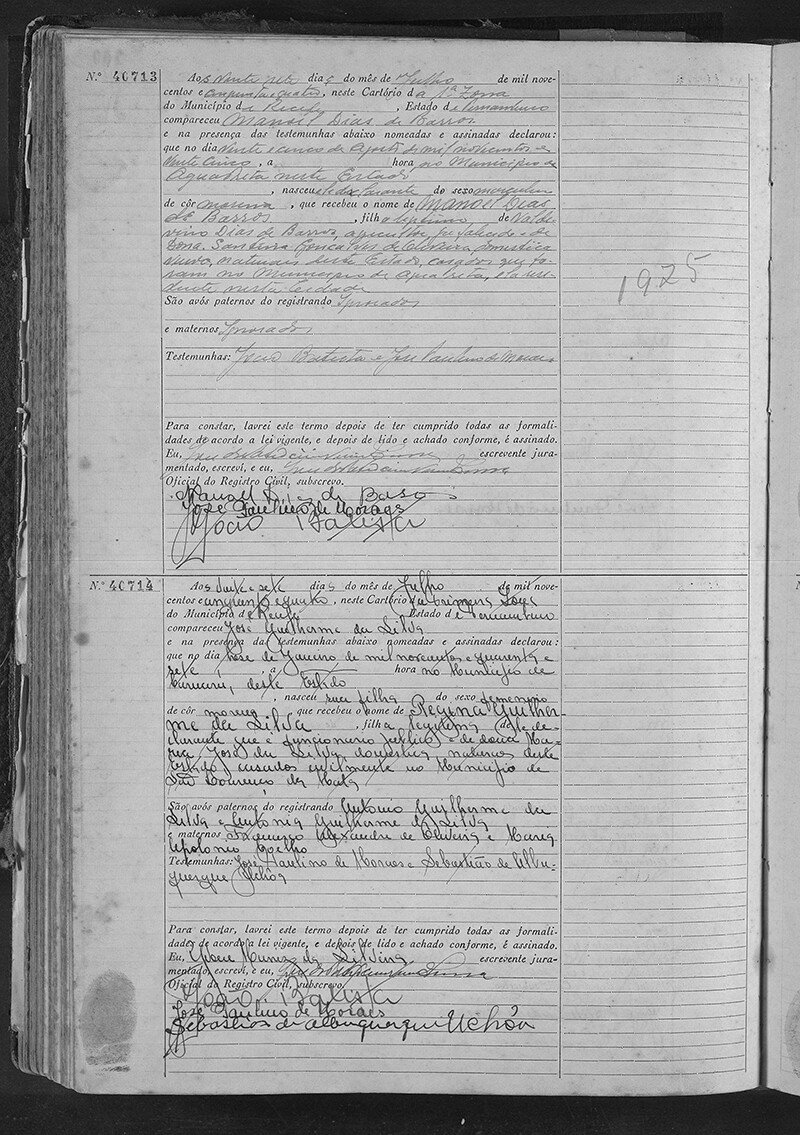 N.º 40713
Aos vinte sete dias do mês de Julho de mil nove-
centos e cinquenta e quatro, neste Cartório da 1ª Zona
do Município de Recife, Estado de Pernambuco
compareceu Manoel Dias de Barros
e na presença das testemunhas abaixo nomeadas e assinadas declarou:
que no dia vinte e cinco de Agosto de mil novecentos e
vinte cinco, a hora no Municipio de
Aguapreta neste Estado
, nasceu elle declarante do sexo masculino
de côr morena, que recebeu o nome de Manoel Dias
de Barros, filh o legitimo de Valde-
vino Dias de Barros, agricultor, ja falecido e de
Dona Gonçalves de Oliveira, domestica
viuva, naturais deste Estado, casados que fo-
ram no Municipio de Aguapreta, ela resi-
dente nesta Cidade
1925
São avós paternos do registrando Ignorados
e maternos Ignorados
Testemunhas: João Batista e José Paulino de Moraes
Para constar, lavrei este termo depois de ter cumprido todas as formali-
dades de acordo a lei vigente, e depois de lido e achado conforme, é assinado.
Eu, escrevente jura-
mentado, escrevi, e eu,
Oficial do Registro Civil, subscrevo.
Manoel Dias de Baros
José Paulino de Moraes
João Batista
N.º 40714
Aos vinte e sete dias do mês de Julho de mil nove-
centos e cinquenta e quatro, neste Cartório da primeira Zona
do Município de Recife Estado de Pernambuco
compareceu José Guilherme da Silva
e na presença das testemunhas abaixo nomeadas e assinadas declarou:
que no dia treze de Janeiro de mil novecentos e quarenta e
sete, a hora no Municipio de
Caruaru, deste Estado
, nasceu sua filha do sexo femenino
de côr morena, que recebeu o nome de Regina Guilher-
me da Silva, filh a legitima dele de-
clarante que é funcionario publico e de dona Ma-
ria José da Silva, domestica, naturais deste
Estado, casados civilmente no Municipio de
São Lourenço da Mata
São avós paternos do registrando Antonio Guilherme da
Silva e Antonia Guilherme da Silva
e maternos Francisco Alexandre de Oliveira e Maria
Apolonia Coelho
Testemunhas: José Paulino de Moraes e Sebastião de Albu-
querque Uchôa
Para constar, lavrei este termo depois de ter cumprido todas as formali-
dades de acordo a lei vigente, e depois de lido e achado conforme, é assinado.
Eu, da Silveira escrevente jura-
mentado, escrevi, e eu,
Oficial do Registro Civil, subscrevo.
João Batista
José Paulino de Moraes
Sebastião de Albuquerque Uchôa